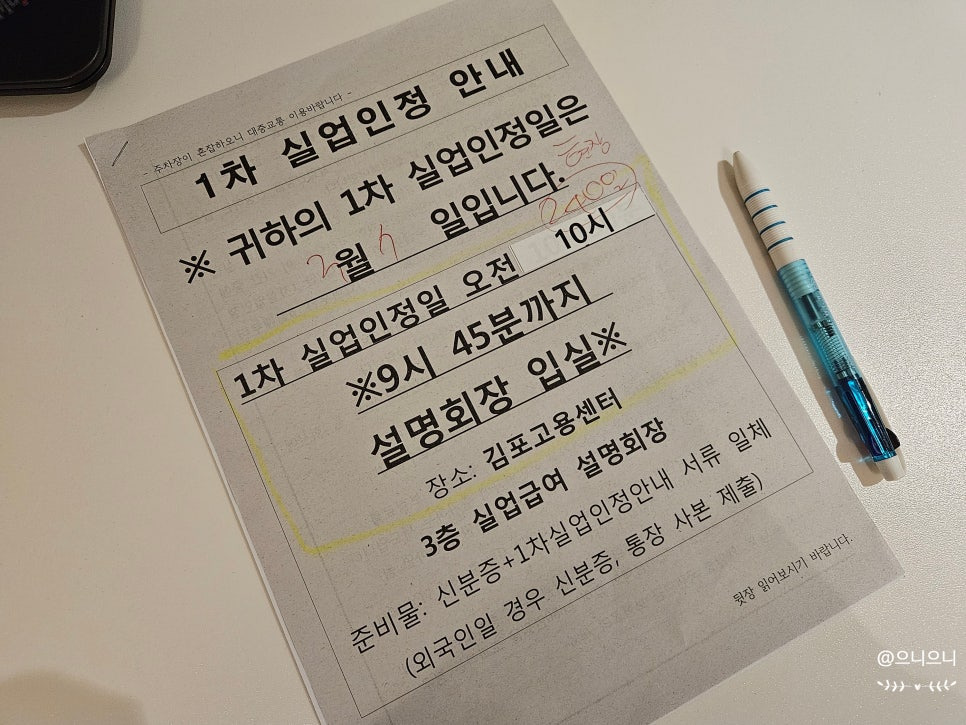 - 주차장이 혼잡하오니 대중교통 이용바랍니다 -
1차 실업인정 안내
※ 귀하의 1차 실업인정일은
월 일입니다.
1차 실업인정일 오전 10시
※9시 45분까지
설명회장 입실※
장소: 김포고용센터
3층 실업급여 설명회장
준비물: 신분증+1차실업인정안내 서류 일체
(외국인일 경우 신분증, 통장 사본 제출)
뒷장 읽어보시기 바랍니다.
@으니으니